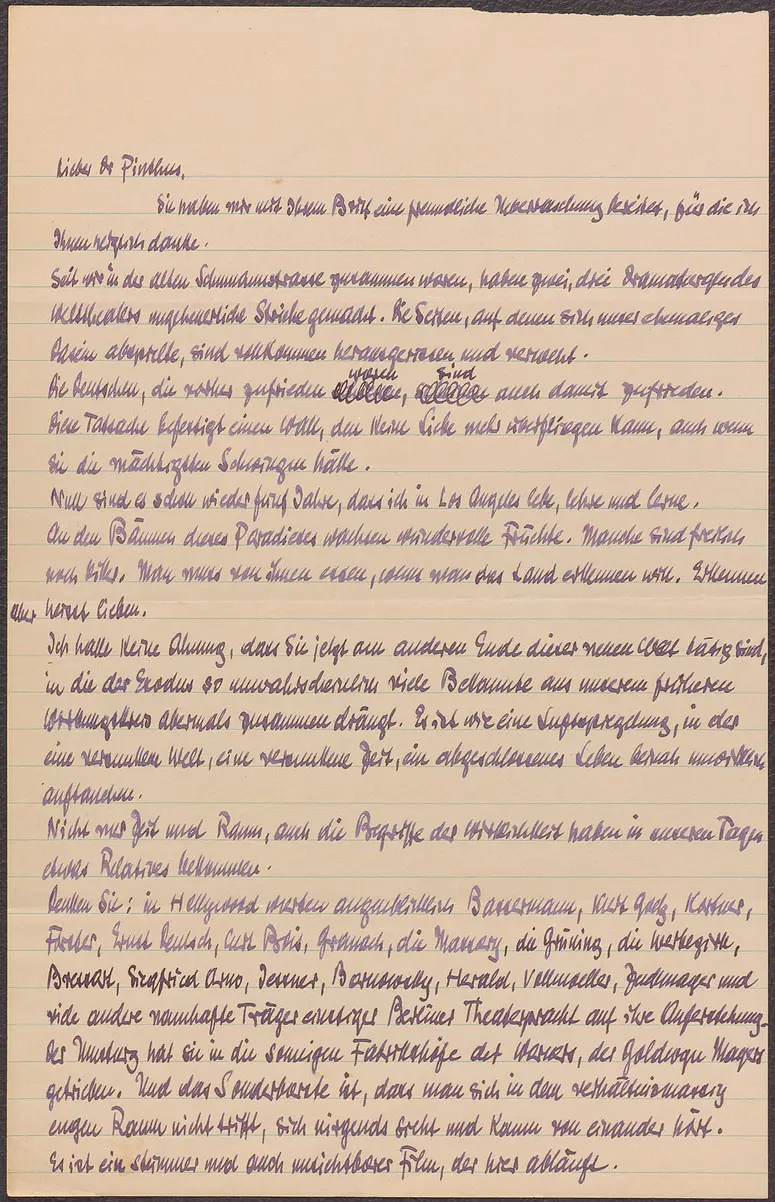 Lieber Dr Pinthus,
Sie haben mir mit Ihrem Brief eine freundliche Ueberraschung bereitet, für die ich
Ihnen herzlich danke.
Seit wir in der alten Schumannstrasse zusammen waren, haben zwei, drei Dramaturgen des
Welttheaters ungeheuerliche Striche gemacht. Die Seiten, auf denen sich unser ehemaliges
Dasein abspielte, sind vollkommen herausgerissen und verweht.
Die Deutschen, die vorher zufrieden waren, sind auch damit zufrieden.
Diese Tatsache befestigt einen Wall, den keine Liebe mehr überfliegen kann, auch wenn
sie die mächtigsten Schwingen hätte.
Nun sind es schon wieder fünf Jahre, dass ich in Los Angeles lebe, lehre und lerne.
An den Bäumen dieses Paradieses wachsen wundervolle Früchte. Manche sind freilich
noch bitter. Man muss von Ihnen essen, wenn man das Land erkennen will. Erkennen
aber heisst lieben.
Ich hatte keine Ahnung, dass Sie jetzt am anderen Ende dieser neuen Welt tätig sind,
in die der Exodus so unwahrscheinlich viele Bekannte aus unserem früheren
Wirkungskreis abermals zusammen drängt. Es ist wie eine Luftspiegelung, in der
eine versunkene Welt, eine versunkene Zeit, ein abgeschlossenes Leben beinah unwirklich
auftauchen.
Nicht nur Zeit und Raum, auch die Begriffe der Wirklichkeit haben in unseren Tagen
etwas Relatives bekommen.
Denken Sie: in Hollywood warten augenblicklich Bassermann, Kurt Götz, Kortner,
Ernst Deutsch, Curt Bois, Granach, die Massary, die Grüning, die Werbezirk,
Bressart, Siegfried Arno, Jessner, Barnowsky, Herald, Vollmoeller, und
viele andere namhafte Träger einstiger Berliner Theaterpracht auf ihre Auferstehung.
Der Umsturz hat sie in die sonnigen Fabrikshöfe der Warners, der Goldwyn Mayers
getrieben. Und das Sonderbarste ist, dass man sich in dem verhältnismassig
engen Raum nicht trifft, sich nirgends sieht und kaum von einander hört.
Es ist ein stummer und auch unsichtbarer Film, der hier abläuft.